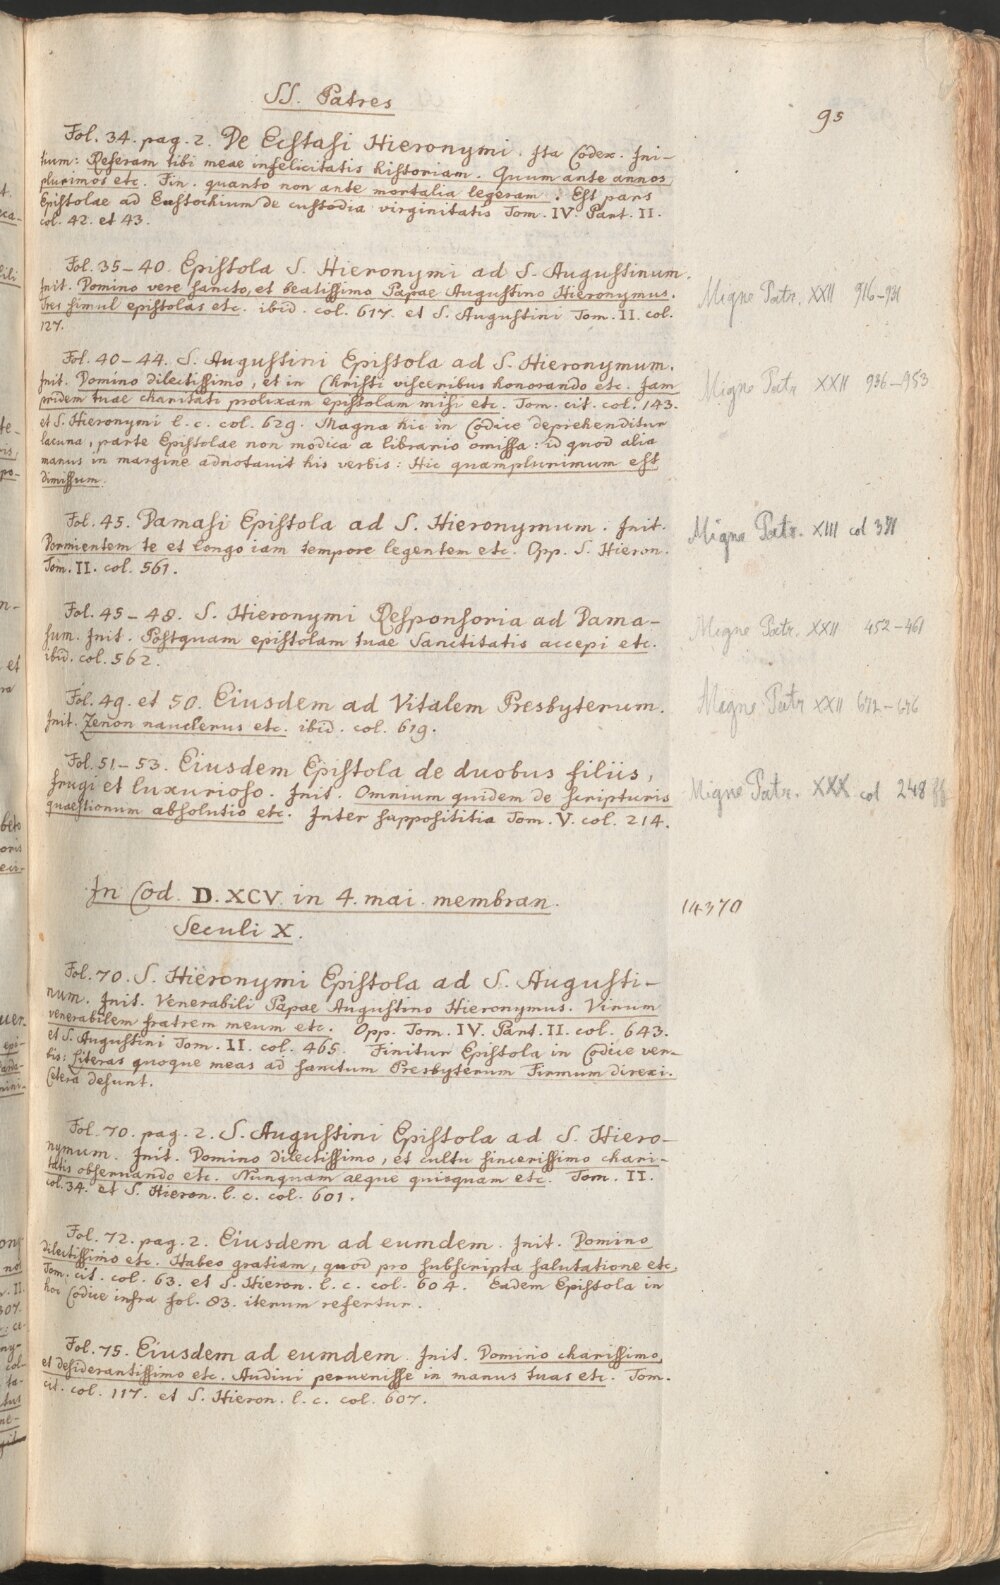 SS. Patres
95
Fol. 34. pag. 2. De Ecstasi Hieronymi. Ita Codex. Ini-
tium: Referam tibi meae infelicitatis historiam. Quum ante annos
plurimos etc. Fin. quanto non ante mortalia legeram: Est pars
Epistolae ad Eustochium de custodia virginitatis Tom. IV. Part. II.
col. 42. et 43.
Fol. 35–40. Epistola S. Hieronymi ad S. Augustinum.
Init. Domino vere sancto, et beatissimo Papae Augustino Hieronymus.
Tres simul epistolas etc. ibid. col. 617. et S. Augustini Tom. II. col.
127.
Migne Patr. XXII 916–931
Fol. 40–44. S. Augustini Epistola ad S. Hieronymum.
Init. Domino dilectissimo, et in Christi visceribus honorando etc. Jam
pridem tuae charitati prolixam epistolam misi etc. Tom. cit. col. 143.
et S. Hieronymi l. c. col. 629. Magna hic in Codice deprehenditur
lacuna, parte Epistolae non modica a librario omissa: id quod alia
manus in margine adnotauit his verbis: Hic quamplurimum est
dimissum.
Migne Patr XXII 936–953
Fol. 45. Damasi Epistola ad S. Hieronymum. Init.
Dormientem te et longo iam tempore legentem etc. Opp. S. Hieron.
Tom. II. col. 561.
Migne Patr. XIII col 371
Fol. 45–48. S. Hieronymi Responsoria ad Dama-
sum. Init. Postquam epistolam tuae Sanctitatis accepi etc.
ibid. col. 562.
Migne Patr. XXII 452–461
Fol. 49. et 50. Eiusdem ad Vitalem Presbyterum.
Init. Zenon nauclerus etc. ibid. col. 619.
Migne Patr XXII 672–676
Fol. 51–53. Eiusdem Epistola de duobus filiis,
frugi et luxurioso. Init. Omnium quidem de scripturis
quaestionum absolutio etc. Inter supposititia Tom. V. col. 214.
Migne Patr. XXX col 248 ff
In Cod. D. XCV. in 4. mai. membran.
Seculi X.
14370
Fol. 70. S. Hieronymi Epistola ad S. Augusti-
num. Init. Venerabili Papae Augustino Hieronymus. Virum
venerabilem fratrem meum etc. Opp. Tom. IV. Part. II. col. 643.
et S. Augustini Tom. II. col. 465. Finitur Epistola in Codice ver-
bis: Literas quoque meas ad sanctum Presbyterum Firmum direxi.
Cetera desunt.
Fol. 70. pag. 2. S. Augustini Epistola ad S. Hiero-
nymum. Init. Domino dilectissimo, et cultu sincerissimo chari-
tatis obseruando etc. Nunquam aeque quisquam etc. Tom. II.
col. 34. et S. Hieron. l. c. col. 601.
Fol. 72. pag. 2. Eiusdem ad eumdem. Init. Domino
dilectissimo etc. Habeo gratiam, quod pro subscripta salutatione etc.
Tom. cit. col. 63. et S. Hieron. l. c. col. 604. Eadem Epistola in
hoc Codice infra fol. 83. iterum refertur.
Fol. 75. Eiusdem ad eumdem. Init. Domino charissimo,
et desiderantissimo etc. Audiui peruenisse in manus tuas etc. Tom.
cit. col. 117. et S. Hieron. l. c. col. 607.